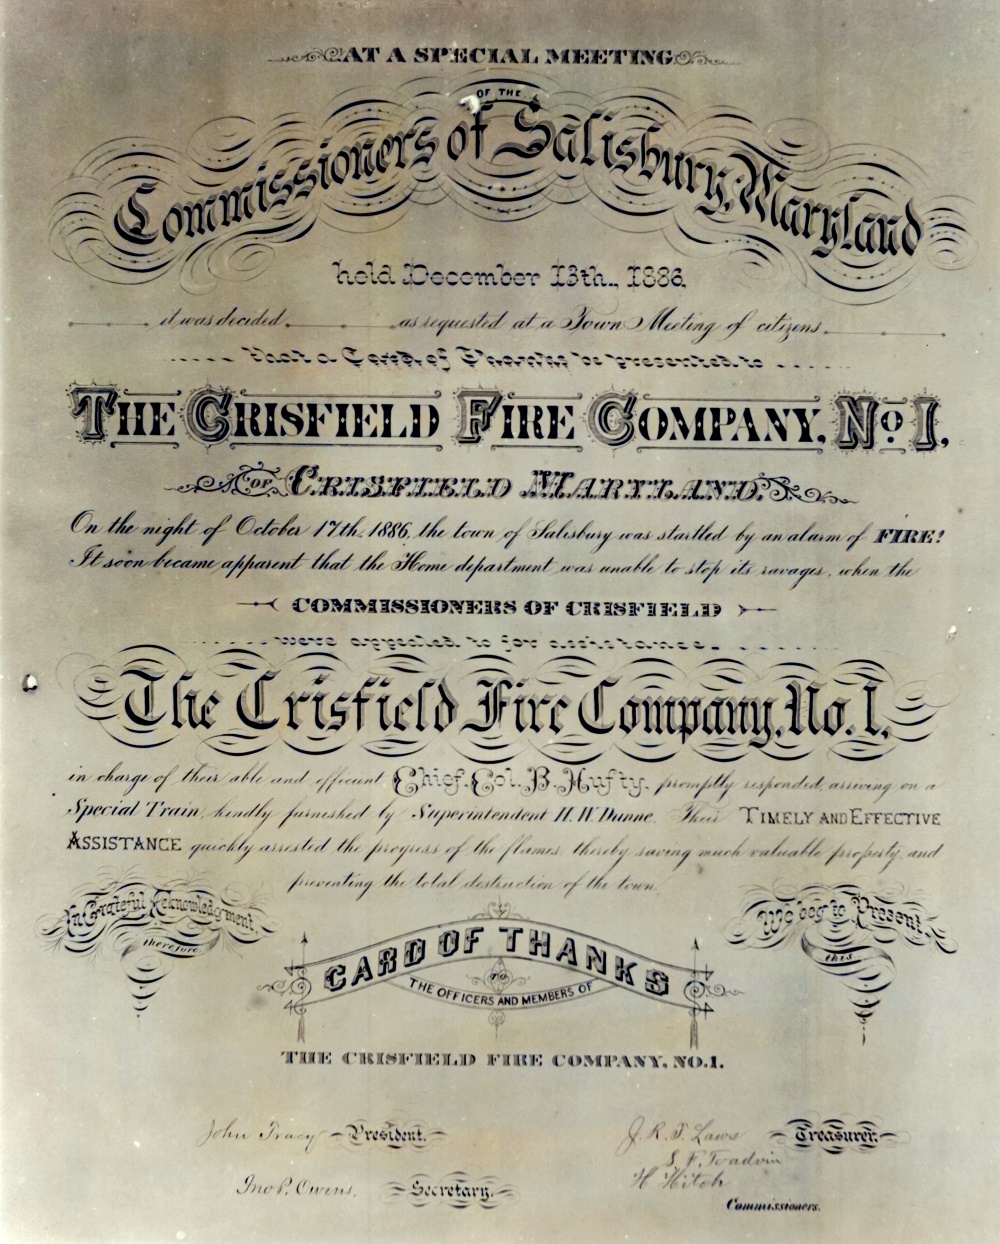 AT A SPECIAL MEETING
OF THE
Commissioners of Salisbury, Maryland
held December 13th., 1886
it was decided as requested at a Town Meeting of citizens
that a Card of Thanks be presented to
THE CRISFIELD FIRE COMPANY, No 1,
OF CRISFIELD MARYLAND.
On the night of October 17th, 1886, the town of Salisbury was startled by an alarm of FIRE!
It soon became apparent that the Home department was unable to stop its ravages, when the
COMMISSIONERS OF CRISFIELD
were appealed to for assistance.
The Crisfield Fire Company, No. 1,
in charge of their able and efficient Chief, Col. B. Hufty, promptly responded, arriving on a
Special Train, kindly furnished by Superintendent H. W. Dunne. Their TIMELY AND EFFECTIVE
ASSISTANCE quickly arrested the progress of the flames, thereby saving much valuable property, and
preventing the total destruction of the town.
In Grateful Acknowledgment,
therefore,
We beg to Present,
this
CARD OF THANKS
TO
THE OFFICERS AND MEMBERS OF
THE CRISFIELD FIRE COMPANY, NO.1.
John Tracy President.
J. R. T. Laws Treasurer.
S. F. Toadvin
Jno. P. Owens, Secretary.
H Hitch
Commissioners.